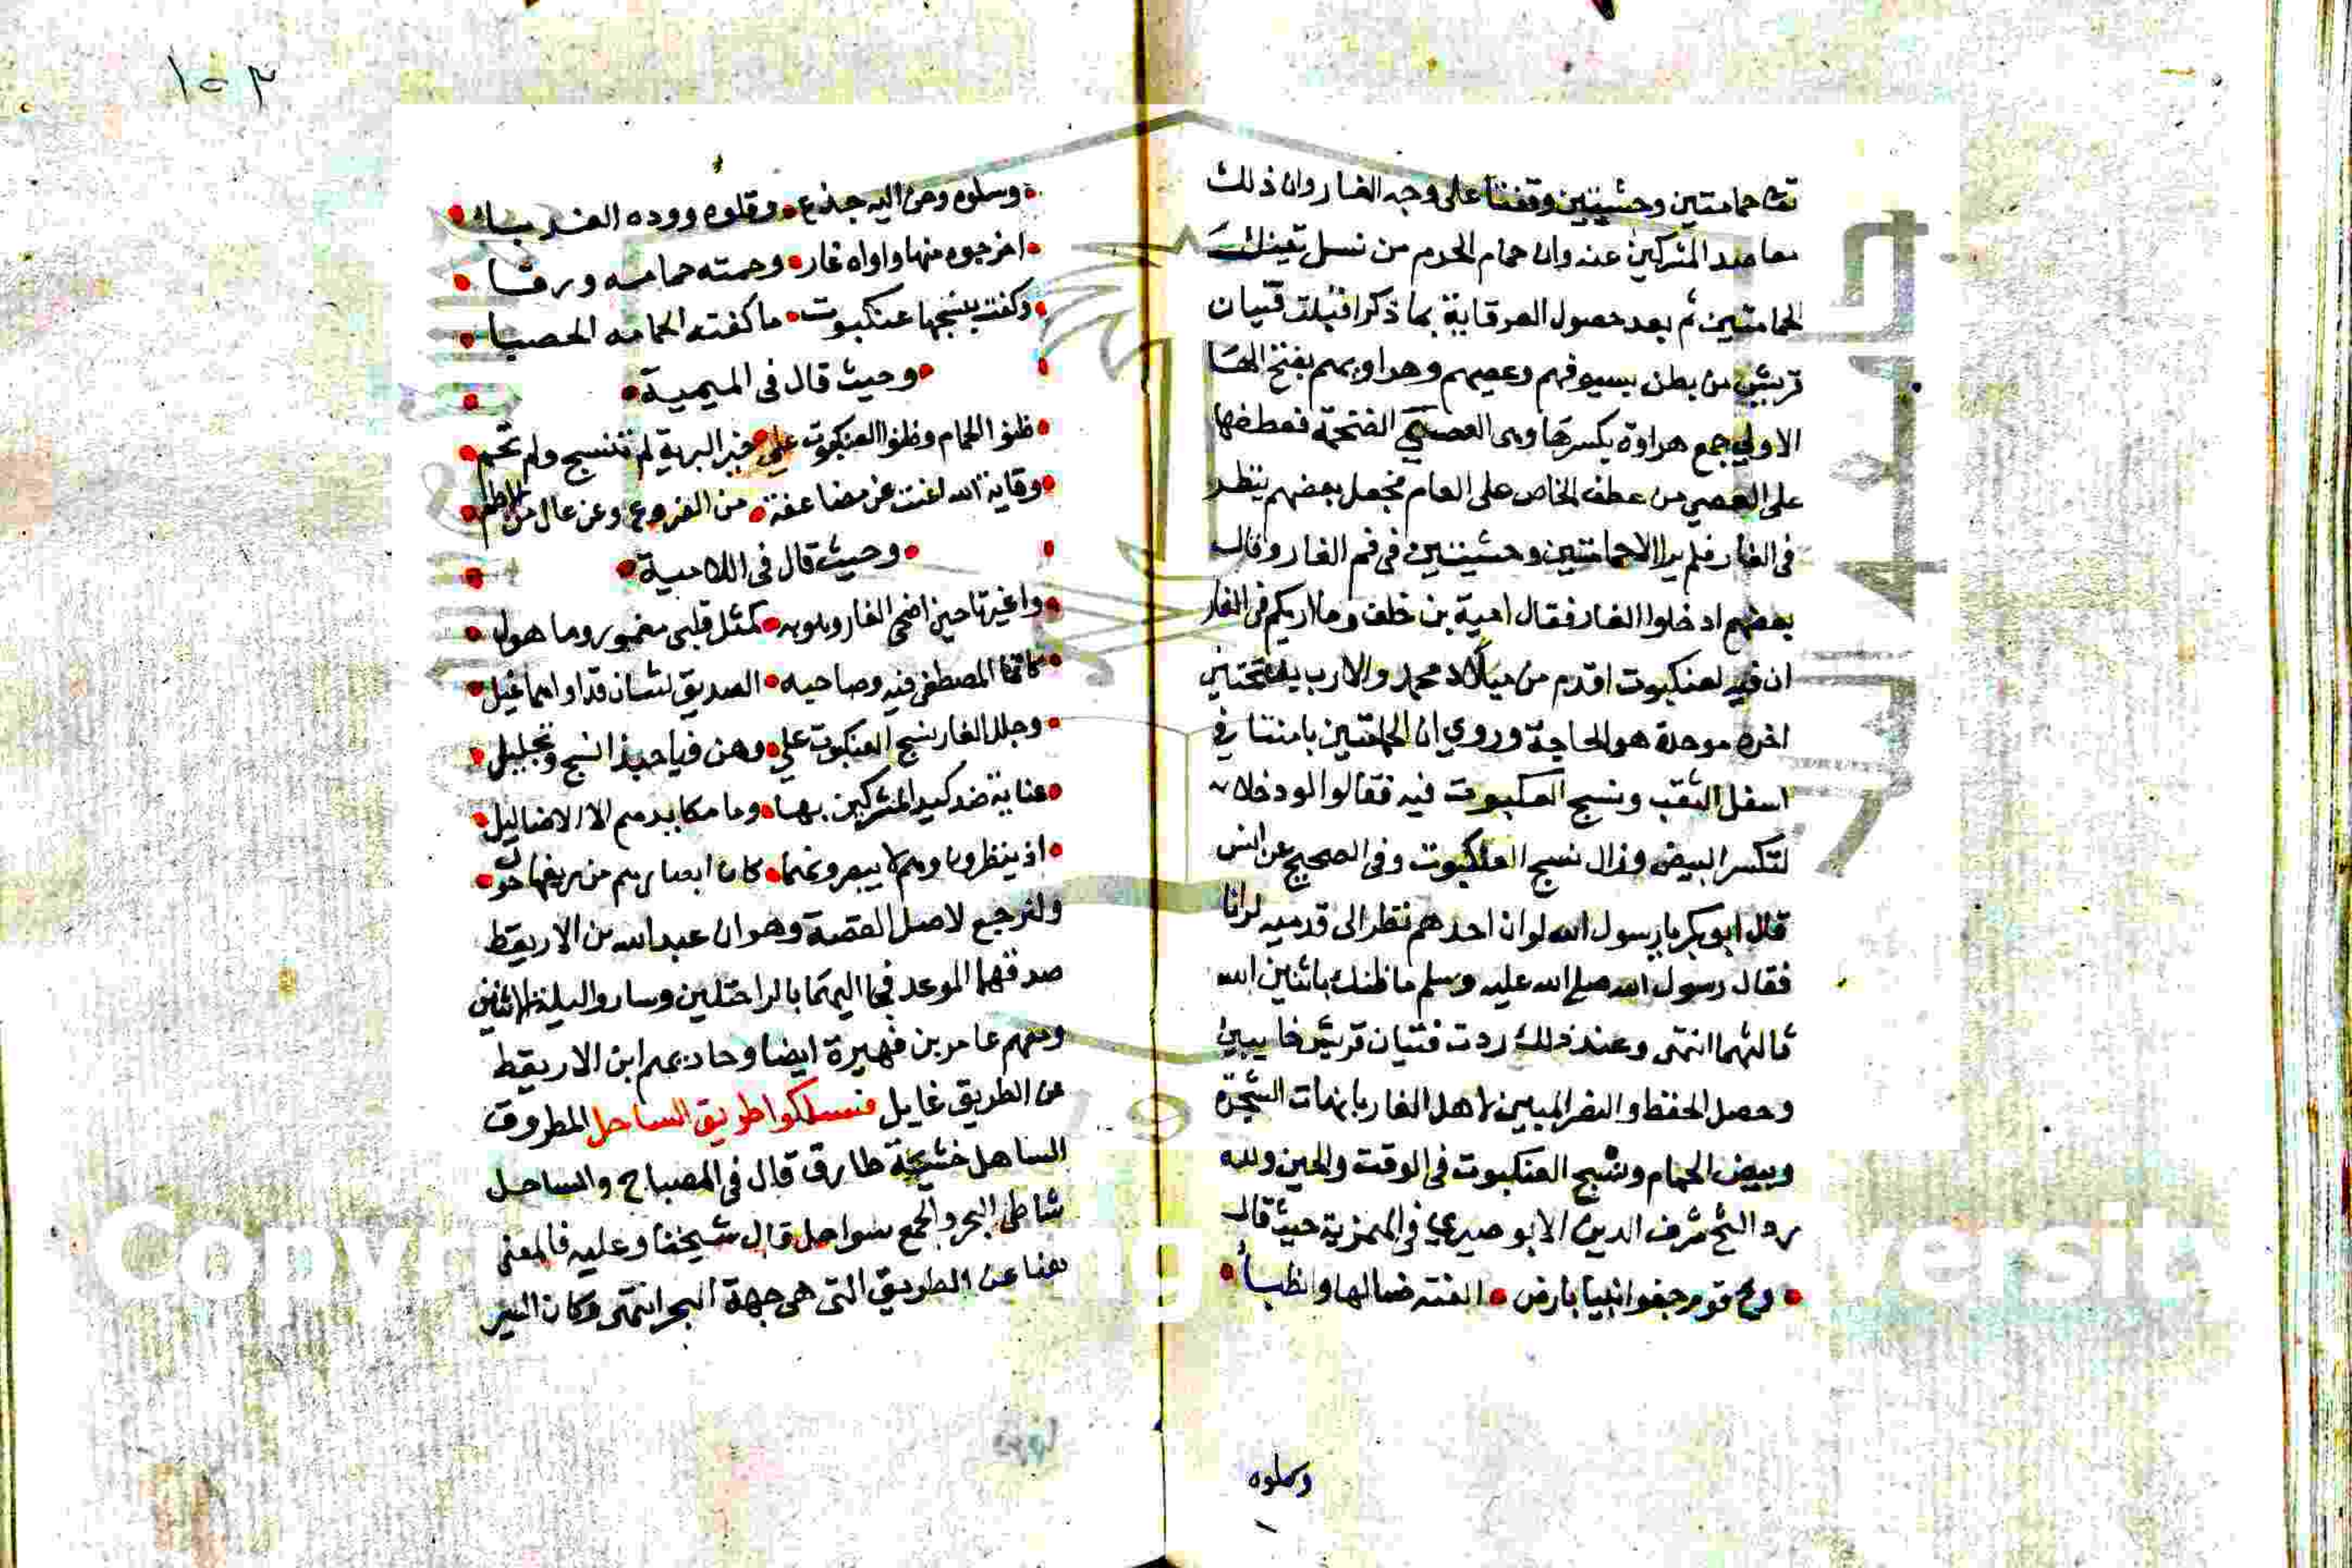 تعا حمامتين وحشيتين وقفتا على وجه الغار وان ذلك
مما صد المشركين عنه وان حمام الحرم من نسل تينك
الحمامتين ثم بعد حصول الوقاية بما ذكر اقبلت فتيان
قريش من بطن بسيوفهم وعصيهم وهراويهم بفتح الها
الاولي جمع هراوة بكسرها وهى العصى الضخمة فعطفها
على العصي من عطف الخاص على العام فجعل بعضهم ينظر
فى الغار فلم ير الا حمامتين وحشيتين فى فم الغار وقال
بعضهم ادخلوا الغار فقال امية بن خلف وما اربكم فى الغار
ان فيه لعنكبوت اقدم من ميلاد محمد والارب بفتحتين
اخره موحدة هو الحاجة وروي ان الحمامتين باضتا في
اسفل الثقب ونسج العنكبوت فيه فقالوا لو دخلا
لتكسر البيض وزال نسج العنكبوت وفى الصحيح عن انس
قال ابو بكر يا رسول الله لو ان احدهم نظر الى قدميه لرانا
فقال رسول الله صلى الله عليه وسلم ما ظنك باثنين الله
ثالثهما انتهى وعند ذلك ردت فتيان قريش خايبين
وحصل الحفظ والنصر المبين لاهل الغار بانبات الشجرة
وبيض الحمام ونسج العنكبوت فى الوقت والحين ولله
در الشيخ شرف الدين الابوصيري في الهمزية حيث قال
ويح قوم جفوا نبيا بارض الفته ضبابها والظبا
وسلوه
١٠٣
وسلوه وحن اليه جذع وقلوه ووده الغربا
اخرجوه منها واواه غار وحمته حمامه ورقا
وكفته بنسجها عنكبوت ما كفته الحمامه الحصدا
وحيث قال فى الميمية
ظنوا الحمام وظنوا العنكبوت على خير البرية لم تنسج ولم تحم
وقاية الله اغنت عن مضاعفة من الدروع وعن عال من الاطم
وحيث قال فى اللامية
واغيرتا حين اضحى الغار وهو به كمثل قلبى معمور وماهول
كانما المصطفى فيه وصاحبه الصديق ليثان قد اواهما غيل
وجلل الغار نسج العنكبوت على وهن فيا حبذا نسج وتجليل
عناية ضد كيد المشركين بها وما مكايدهم الا الاضاليل
اذ ينظرون وهم لا يبصرونهما كان ابصارهم من زيغها حول
ولنرجع لاصل القصة وهو ان عبد الله بن الاريقط
صدقهما الموعد فجا اليهما بالراحتلين وساروا ليلة الاثنين
ومعهم عامر بن فهيرة ايضا وحاد بهم ابن الاريقط
عن الطريق فسلكوا طريق الساحل المطروق
الساحل قال فى المصباح والساحل
شاطى البحر والجمع سواحل قال شيخنا وعليه فالمعنى
هنا عن الطريق التى هى جهة البحر انتهى وكان النبى